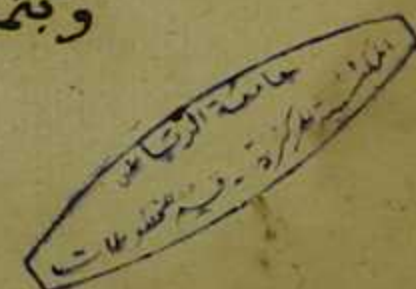 وبتم
جامعة الرياض
المكتبة المركزية - قسم المخطوطات